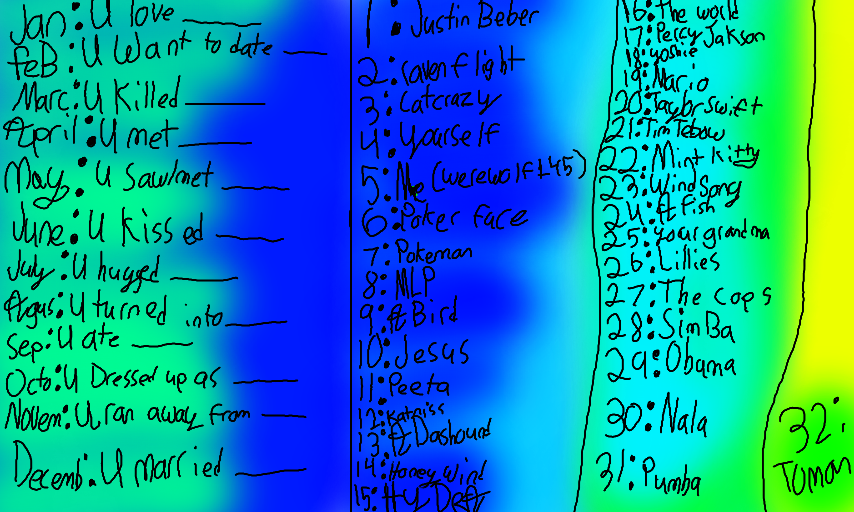 Jan: U love ______
feB: U Want to date ____
Marc: U Killed ______
April: U met ______
May: U Saw/met ______
June: U Kissed ______
July: U hugged ______
Agus: U turned into ______
Sep: U ate ______
Octo: U Dressed up as ______
Novem: U ran away from ____
Decemb: U married ______
1: Justin Beber
2: ravenflight
3: Catcrazy
4: Yourself
5: Me (werewolf145)
6: Poker face
7: Pokeman
8: MLP
9: A Bird
10: Jesus
11: Peeta
12: Katniss
13: A Dashound
14: Honey Wind
15:
16: The world
17: Percy Jakson
18: yoshie
19: Mario
20: Taylor Swift
21: Tim Tebow
22: Mint kitty
23: Wind Song
24: A fish
25: your grandma
26: Lillies
27: The cops
28: SimBa
29: Obama
30: Nala
31: Pumba
32: